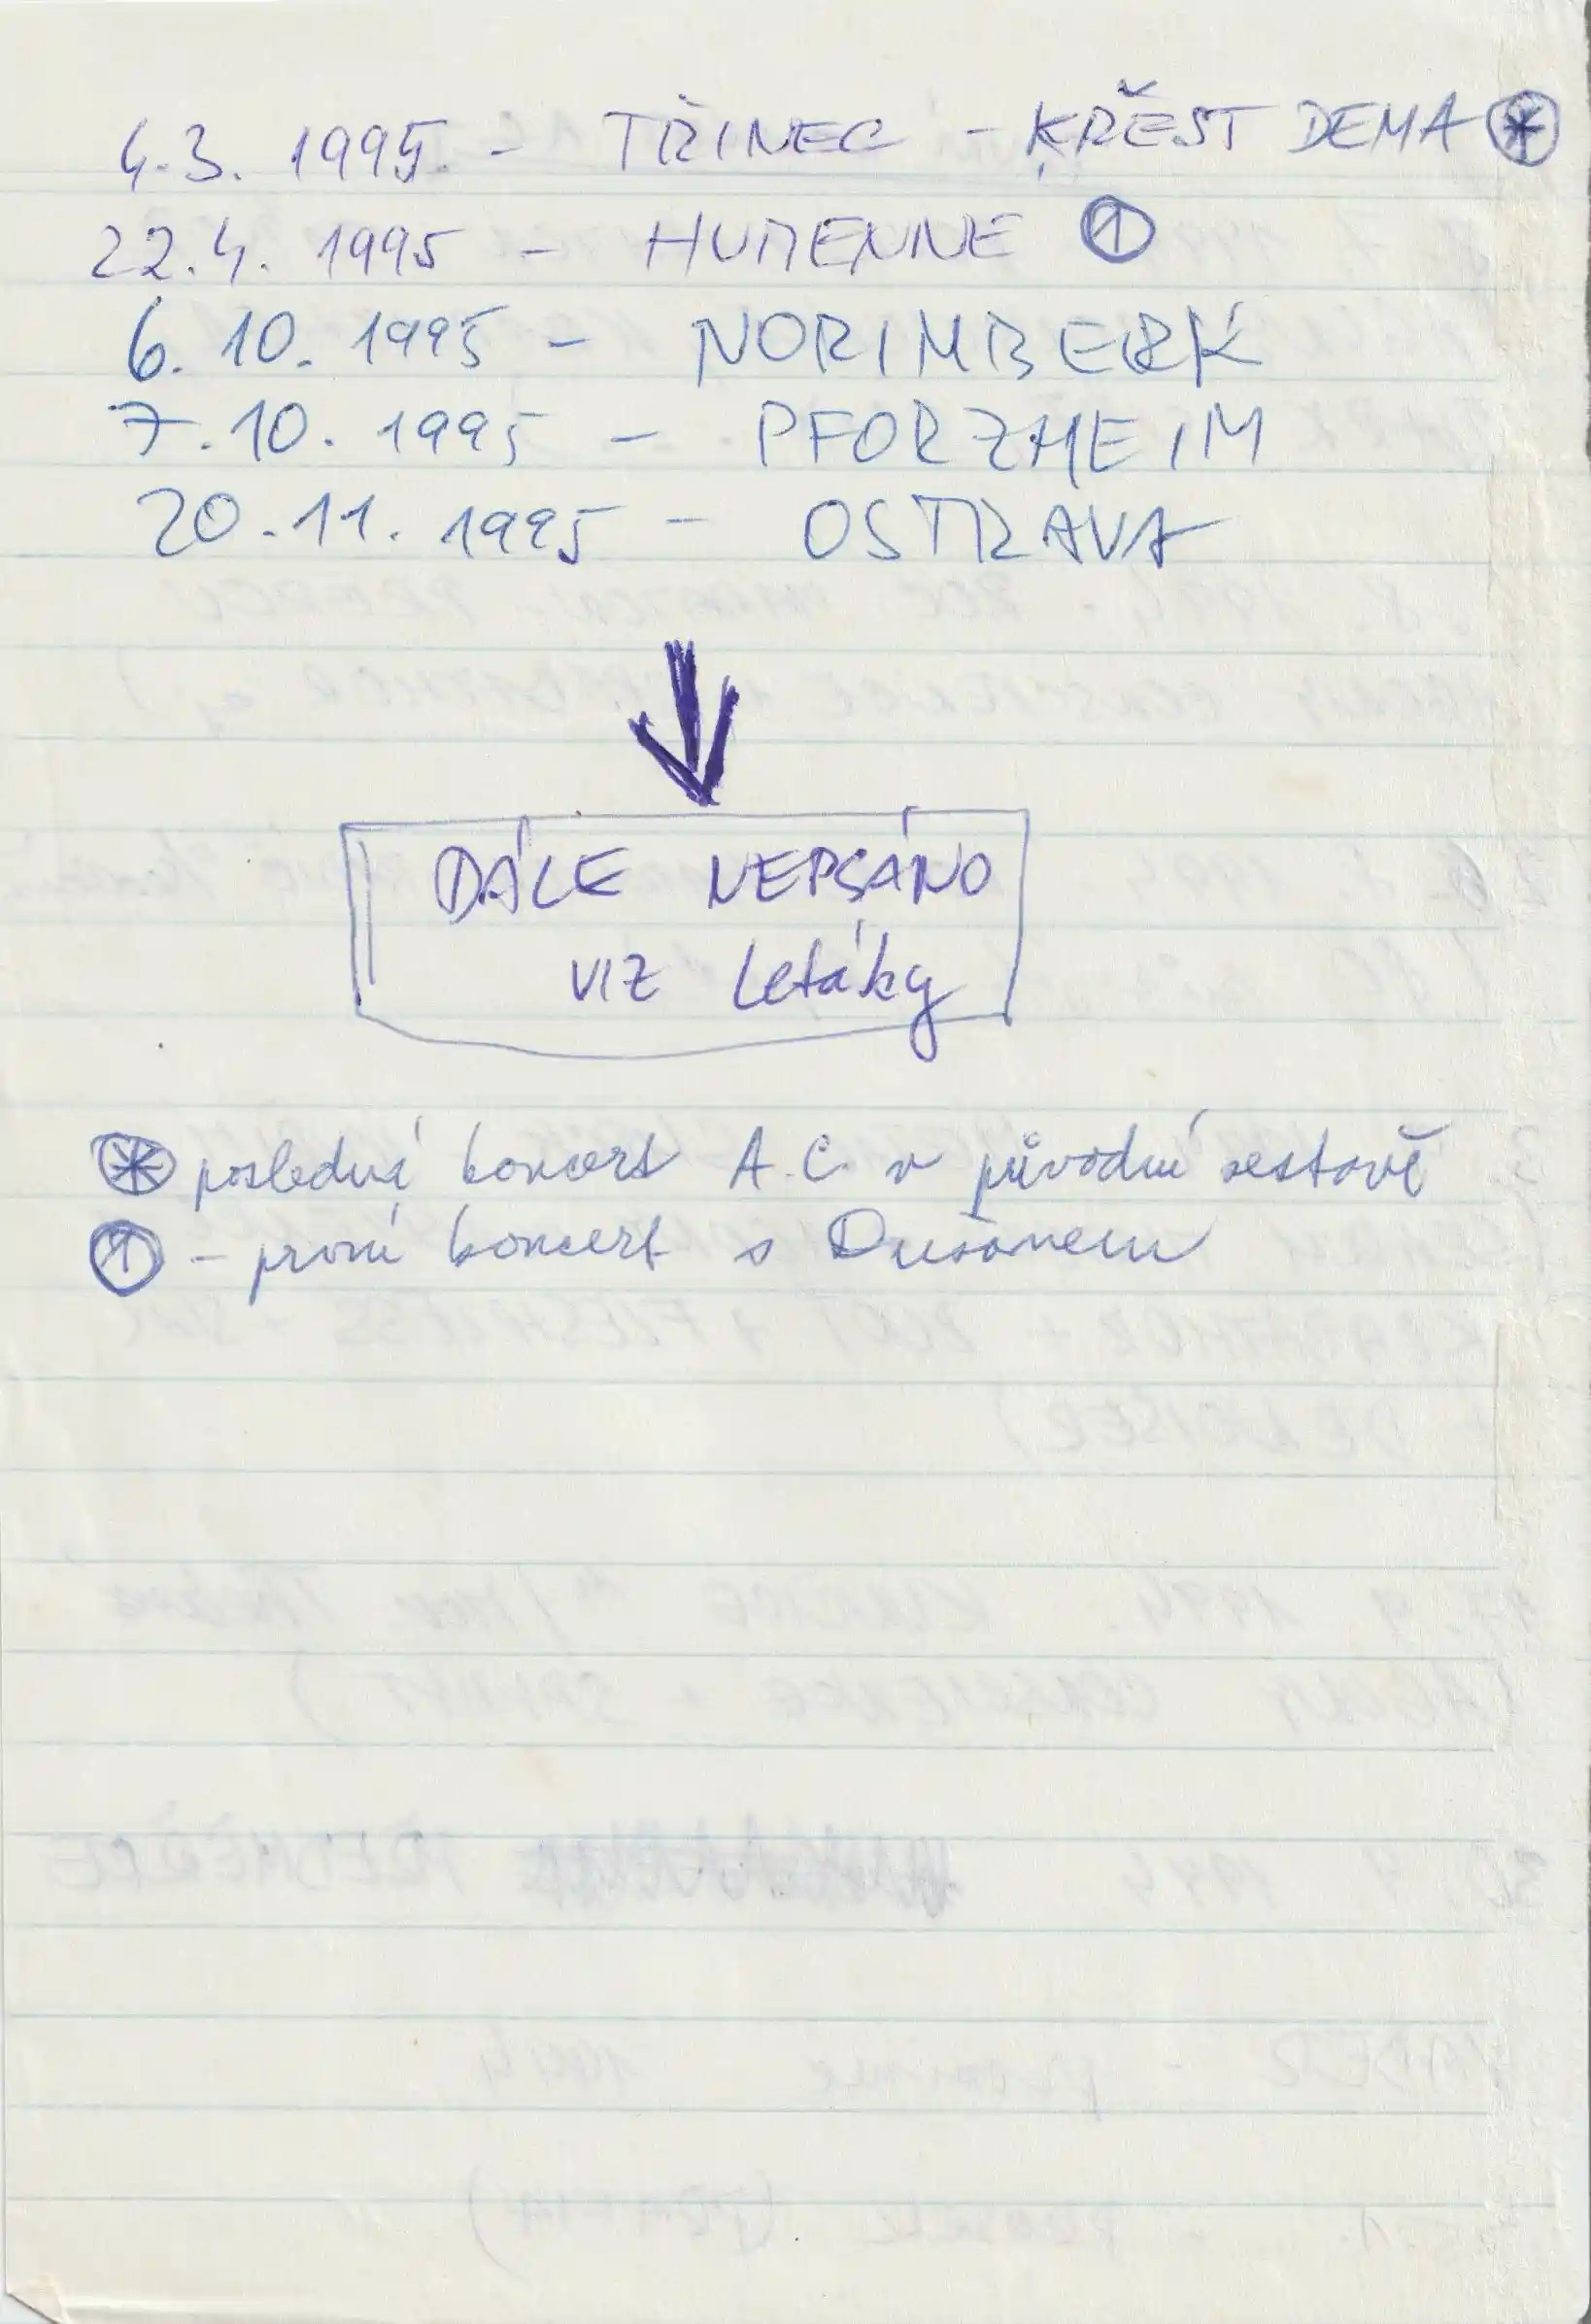 4.3. 1995 - TŘINEC - KŘEST DEMA *
22.4. 1995 - HUMENNE 1
6.10.1995 - NORIMBERK
7.10.1995 - PFORZHEIM
20.11.1995 - OSTRAVA
DÁLE NEPSÁNO
VIZ letáky
* poslední koncert A.C. v původní sestavě
1 - první koncert s Dušanem